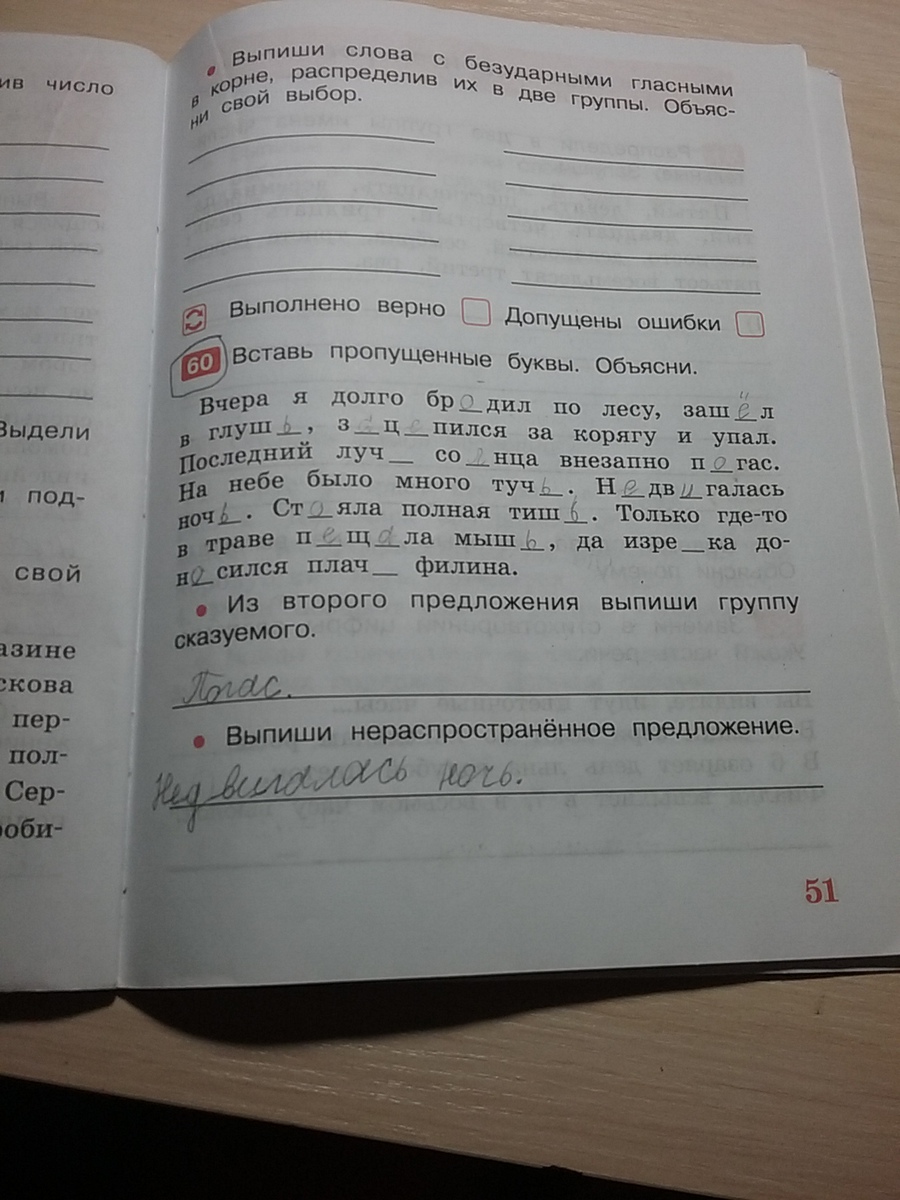 ив число
Выдели
и под-
свой
азине
скова
пер-
пол-
Сер-
роби-
• Выпиши слова с безударными гласными
в корне, распределив их в две группы. Объяс-
ни свой выбор.
Выполнено верно Допущены ошибки
60 Вставь пропущенные буквы. Объясни.
Вчера я долго бродил по лесу, зашёл
в глушь, зацепился за корягу и упал.
Последний луч_ солнца внезапно погас.
На небе было много тучь. Не двигалась
ночь. Стояла полная тишь. Только где-то
в траве пещала мышь, да изре_ка до-
носился плач_ филина.
• Из второго предложения выпиши группу
сказуемого.
Погас.
• Выпиши нераспространённое предложение.
Недвигалась ночь.
51